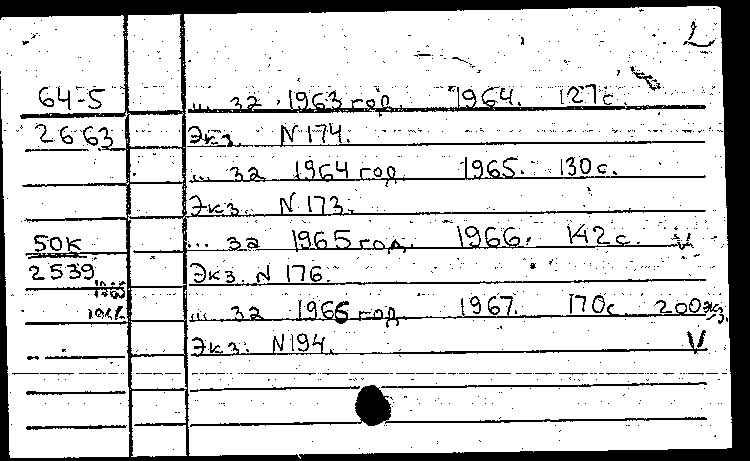 2
64-5 ... за 1963 год. 1964. 127с.
2663 Экз. N174.
... за 1964 год 1965. 130с.
Экз. N173.
50к ... за 1965 год. 1966. 142с. V
2539 Экз. N 176.
... за 1966 год. 1967. 170с 200экз.
Экз. N194. V